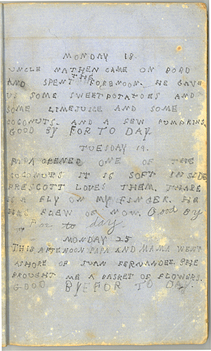 MONDAY 18.
UNCLE NATHEN CAME ON BORD
THE
AND SPENT FORENOON. HE GAVE
US SOME SWEETPOTATOES AND
SOME LIMEJUICE AND SOME
COCONUTS. AND A FEW PUMPKINS.
GOOD BY FOR TO DAY.
TUESDAY 19.
PAPA OPENED ONE OF THE
COCONUTS IT IS SOFT INSIDE
PRESCOTT LOVES THEM. THERE
IS A FLY ON MY FINGER. HE
HAS FLEW OF NOW. Good By
For to day
MONDAY 25
THIS AFTERNOON PAPA AND MAMA WENT
ASHORE OF JUAN FERNANDEE. SHE
BROUGHT ME A BASKET OF FLOWERS.
GOOD BYE FOR TO DAY.